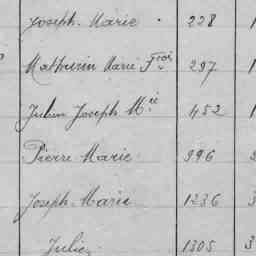 Joseph Marie . 228 1
Mathurin Marie Fçois 297 1
Julien Joseph Mie 452 1
Pierre Marie 996
Joseph Marie 1236 3
Julie 1305 3